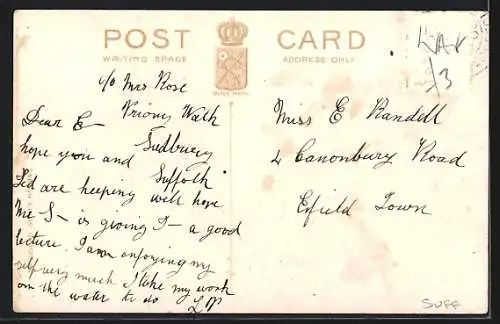 POST CARD
WRITING SPACE ADDRESS ONLY
c/o Mrs Rose
Priory Walk
Sudbury
Suffolk
Dear E
hope you and
Ted are keeping well hope
Me S- is giving I- a good
lecture. I am enjoying my
self very much I take my work
on the water to do LP
Miss E Randell
4 Canonbury Road
Efield Town
1/3
SUFF